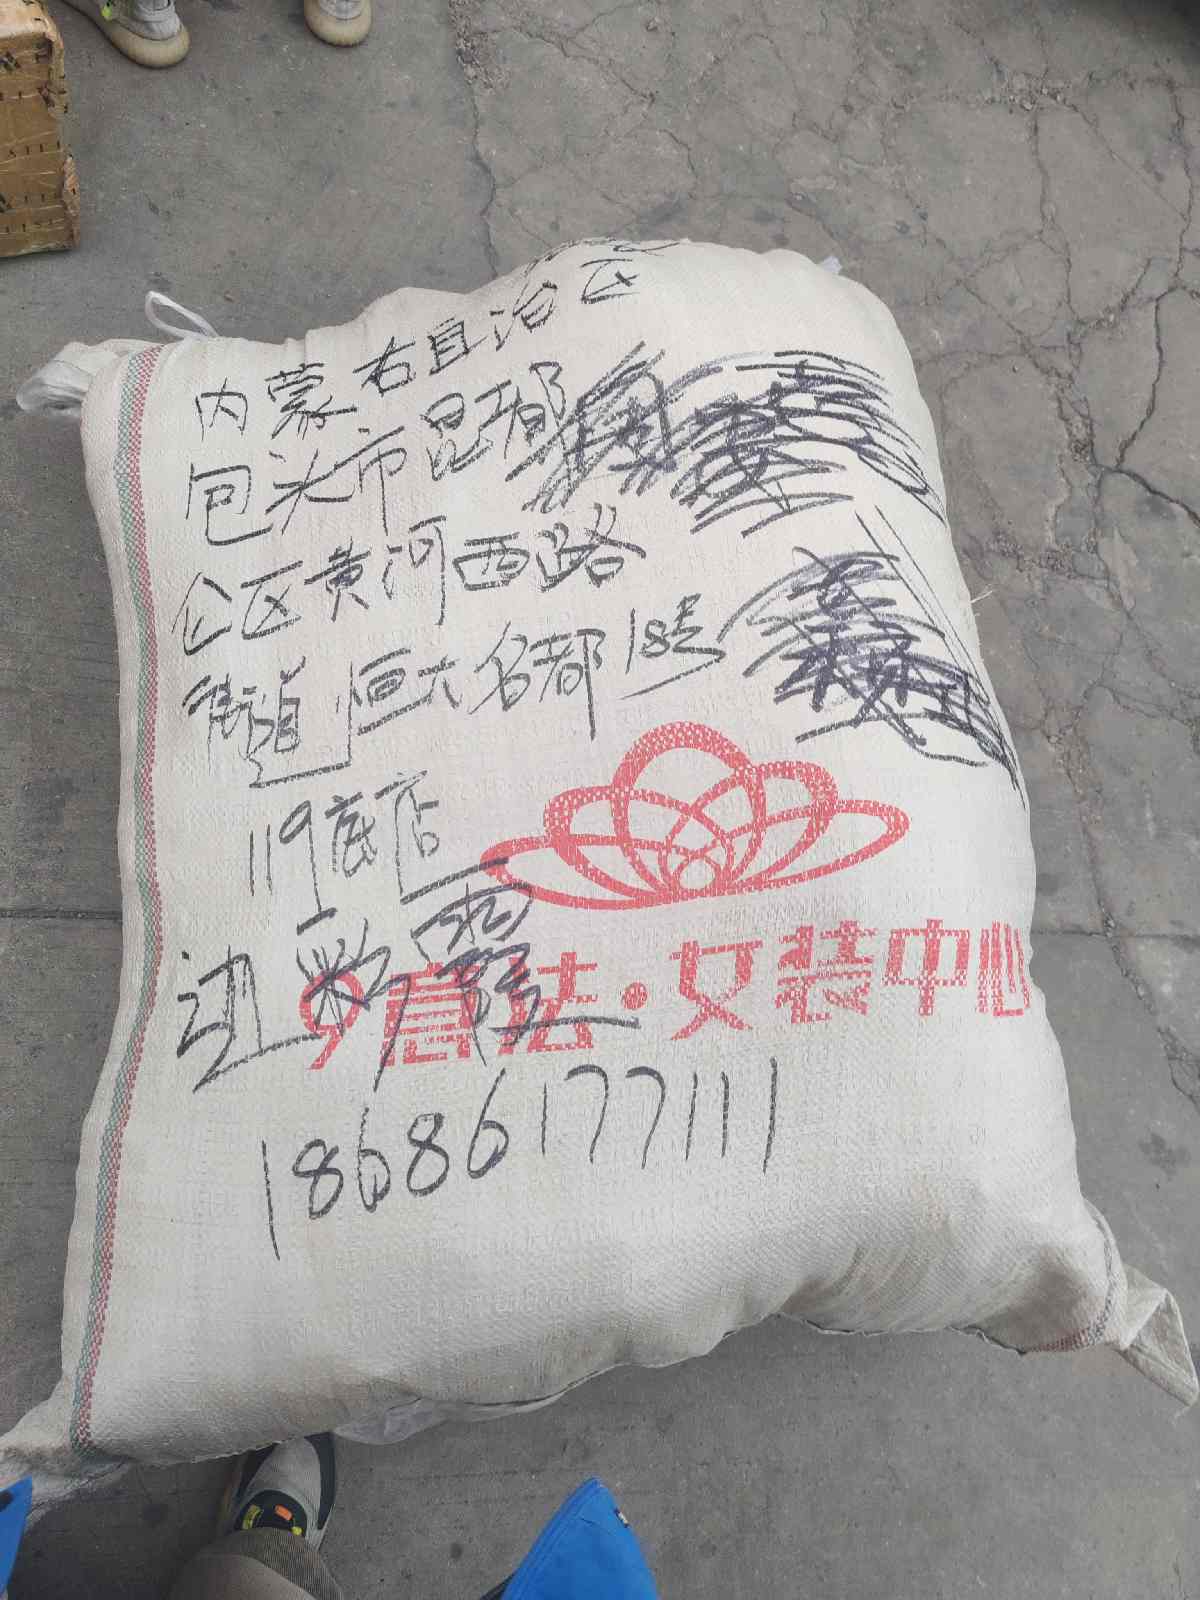 内蒙右自治区
包头市昆都
仑区黄河西路
街道恒大名都18号
119底店
边
9号法·女装中心
18686177111